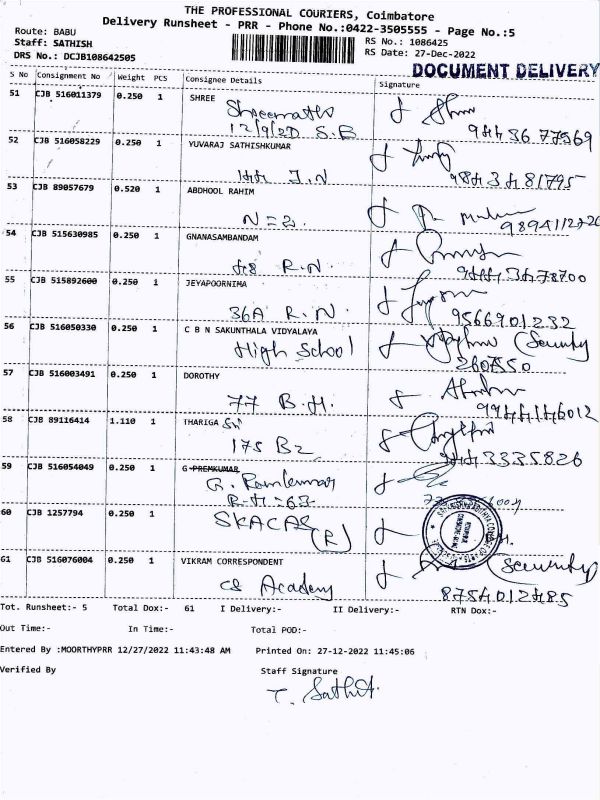 THE PROFESSIONAL COURIERS, Coimbatore
Delivery Runsheet - PRR - Phone No.:0422-3505555 - Page No.:5
Route: BABU
Staff: SATHISH
DRS No.: DCJB108642505
RS No.: 1086425
RS Date: 27-Dec-2022
DOCUMENT DELIVERY
S No Consignment No Weight PCS Consignee Details Signature
51 CJB 516011379 0.250 1 SHREE
12/9/2D S.B
52 CJB 516058229 0.250 1 YUVARAJ SATHISHKUMAR
I.N
53 CJB 89057679 0.520 1 ABDHOOL RAHIM
N = 2
54 CJB 515630985 0.250 1 GNANASAMBANDAM
R.N.
55 CJB 515892600 0.250 1 JEYAPOORNIMA
36A R.N.
9566901232
56 CJB 516050330 0.250 1 C B N SAKUNTHALA VIDYALAYA
High School
(Security
260550
57 CJB 516003491 0.250 1 DOROTHY
77 B.H.
58 CJB 89116414 1.110 1 THARIGA Sri
175 B2
59 CJB 516054049 0.250 1 G PREMKUMAR
G. Ramkumar
R-H=63
60 CJB 1257794 0.250 1
SKACAS (R)
61 CJB 516076004 0.250 1 VIKRAM CORRESPONDENT
CS Academy
(Security
Tot. Runsheet:- 5 Total Dox:- 61 I Delivery:- II Delivery:- RTN Dox:-
Out Time:- In Time:- Total POD:-
Entered By :MOORTHYPRR 12/27/2022 11:43:48 AM Printed On: 27-12-2022 11:45:06
Verified By Staff Signature